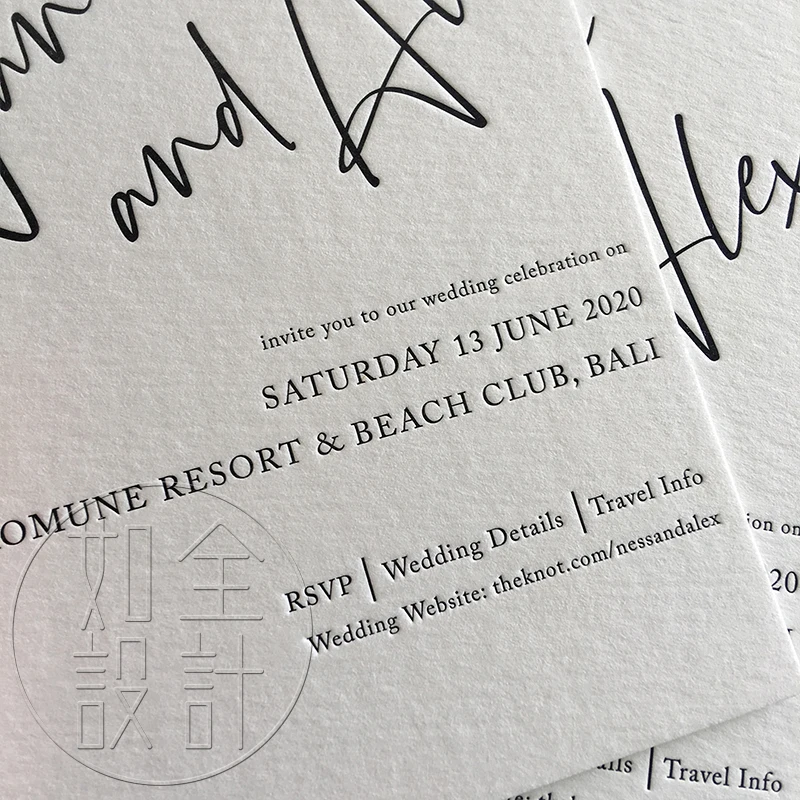 and
invite you to our wedding celebration on
SATURDAY 13 JUNE 2020
RESORT & BEACH CLUB, BALI
RSVP | Wedding Details | Travel Info
Wedding Website: theknot.com/nessandalex
on on
20
| Travel Info
全如
計設